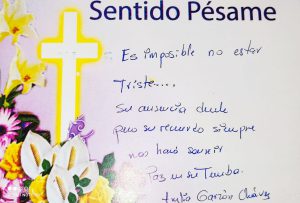 Sentido Pésame
Es imposible no estar
Triste....
Su ausencia duele
pero su recuerdo siempre
nos hará sonreir
Paz en su Tumba.
Garzón Chávez